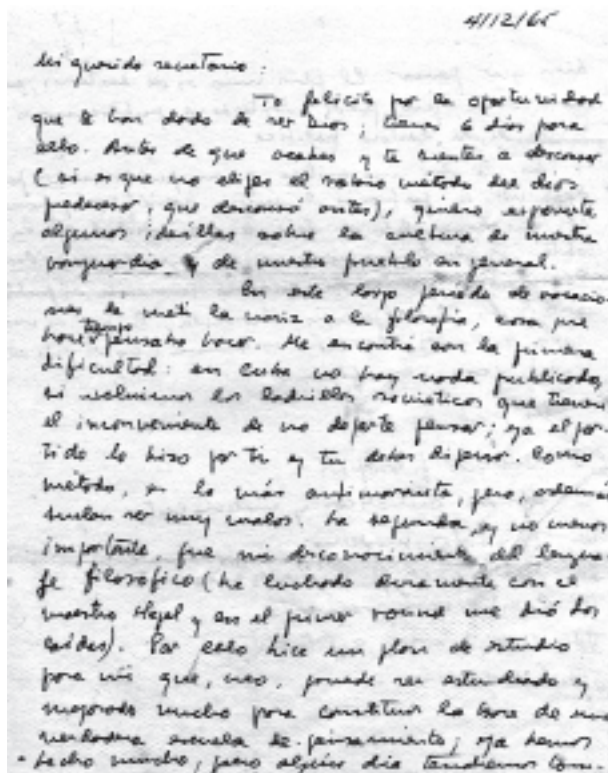 4/12/65
Mi querido secretario:
Te felicito por la oportunidad
que te han dado de ser Dios; tienes 6 días para
ello. Antes de que acabes y te sientes a descansar
(si es que no eliges el sabio método del dios
predecesor, que descansó antes), quiero exponerte
algunas ideillas sobre la cultura de nuestra
vanguardia y de nuestro pueblo en general.
En este largo período de vacacio
nes le metí la nariz a la filosofía, cosa que
hace tiempo pensaba hacer. Me encontré con la primera
dificultad: en Cuba no hay nada publicado,
si excluimos los ladrillos soviéticos que tienen
el inconveniente de no dejarte pensar; ya el par-
tido lo hizo por ti y tu debes digerir. Como
método, es lo más antimarxista, pero, además
suelen ser muy malos. La segunda, y no menos
importante, fue mi desconocimiento del lengua
je filosófico (he luchado duramente con el
maestro Hegel y en el primer round me dió dos
caídas). Por ello hice un plan de estudio
para mí que, creo, puede ser estudiado y
mejorado mucho para constituir la base de una
verdadera escuela de pensamiento; ya hemos
hecho mucho, pero algún día tendremos tam-